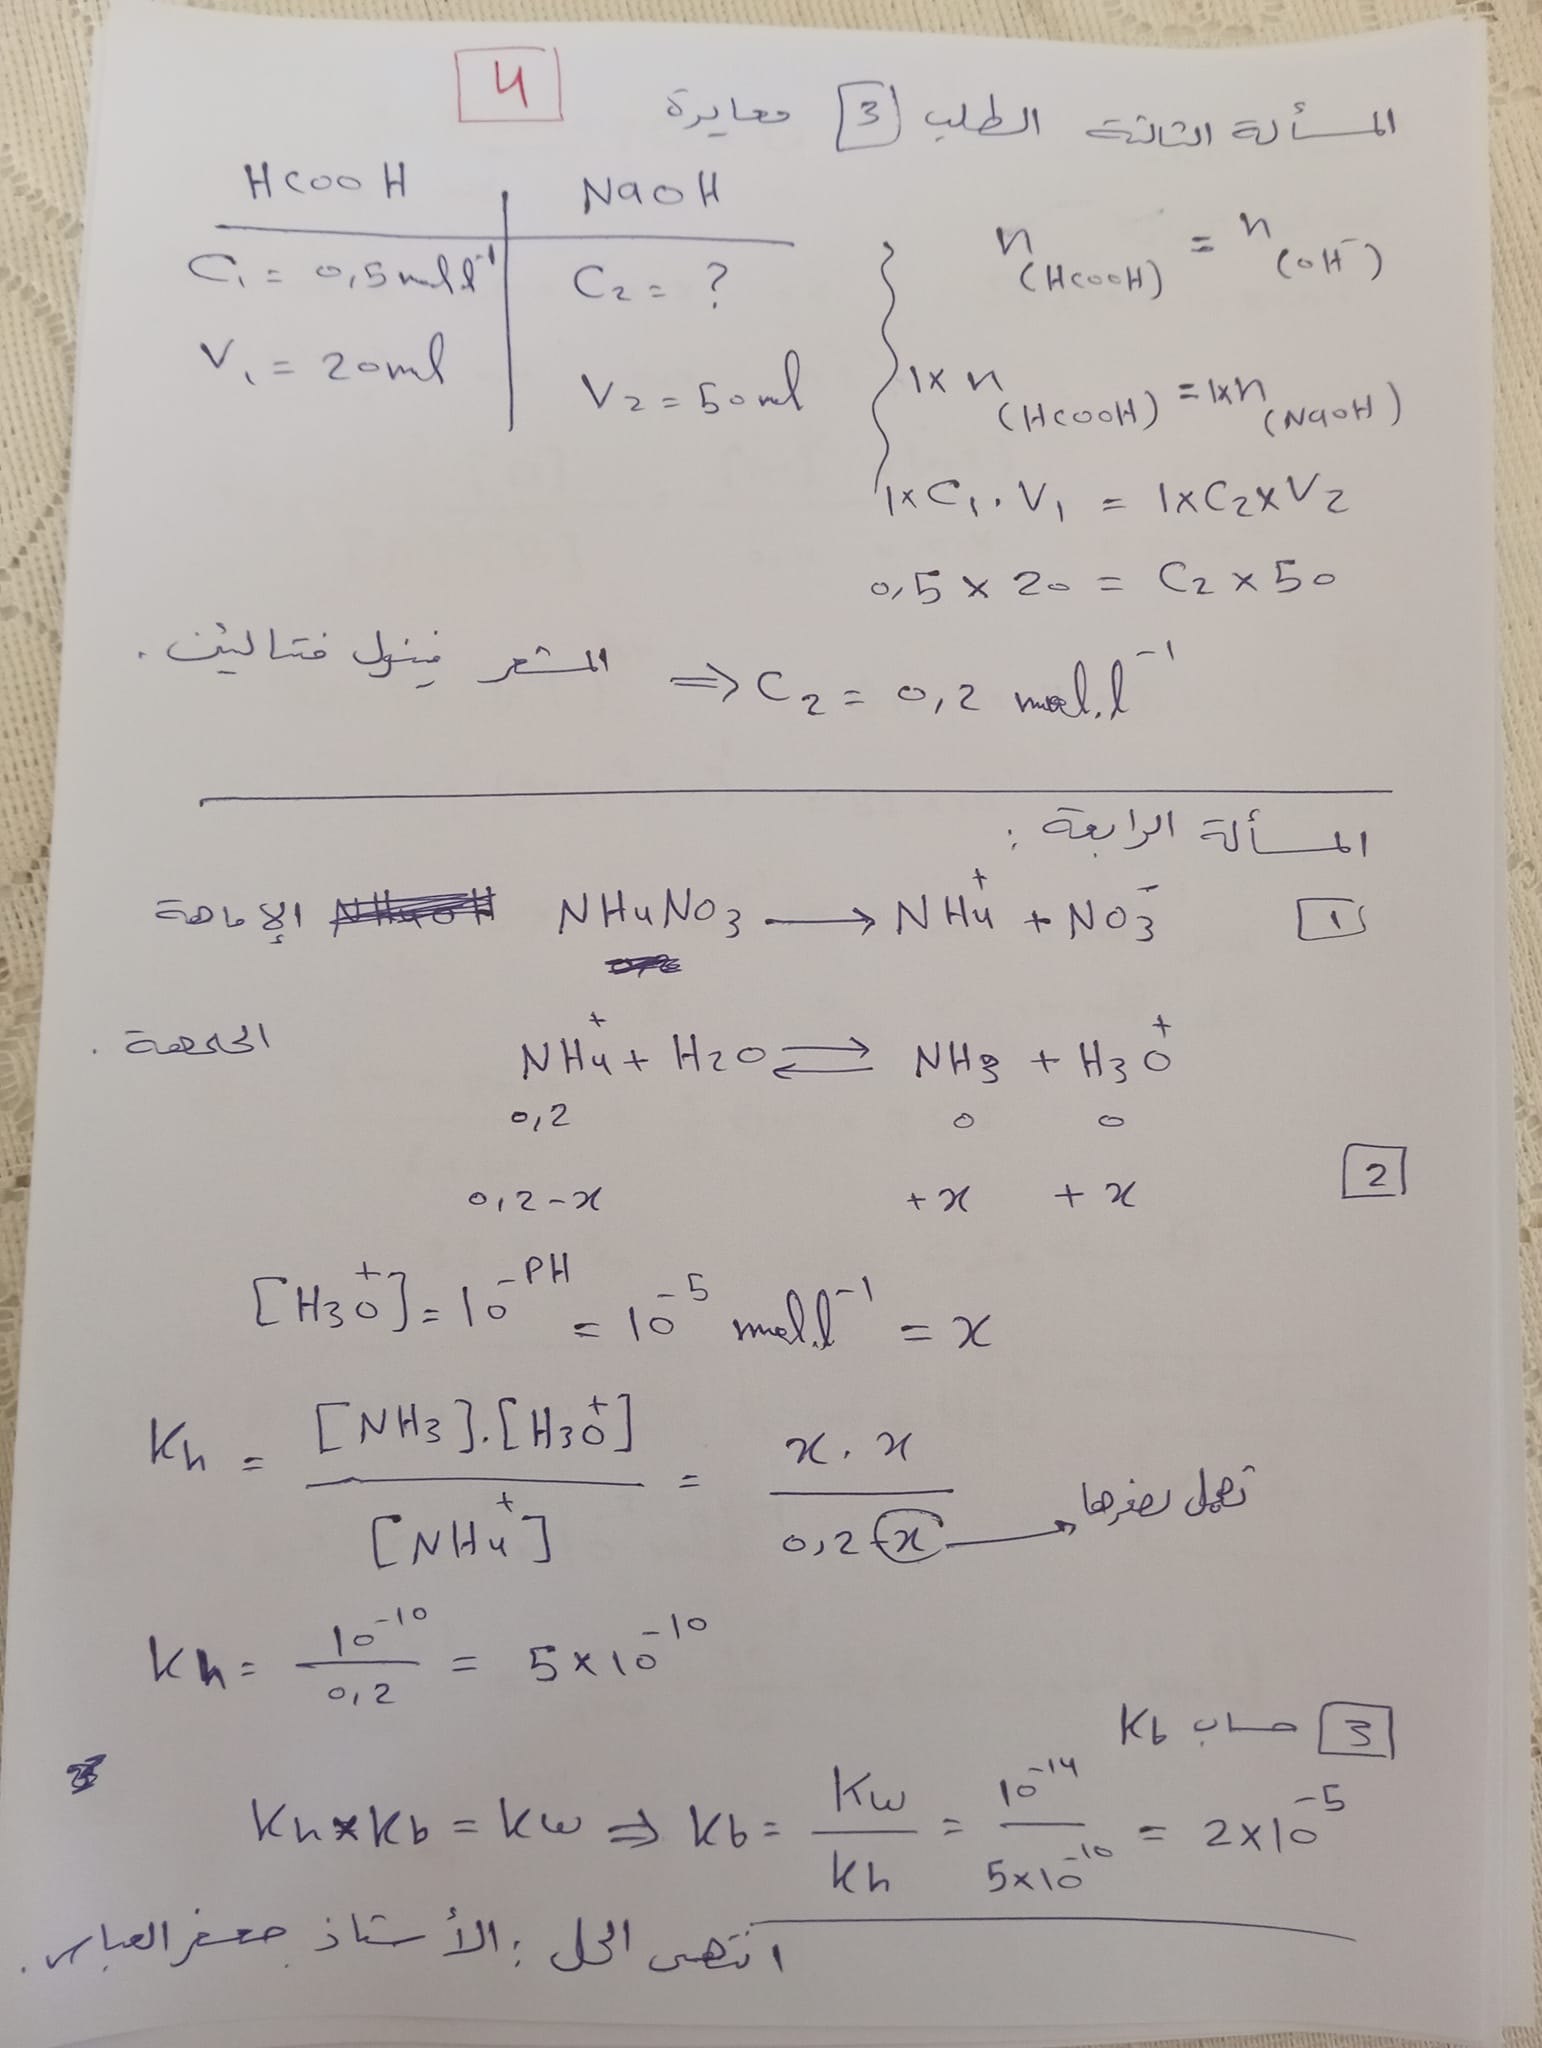 4
المسألة الثالثة الطلب 3 معايرة
HCOOH | NaOH
C₁ = 0,5 mol.l⁻¹ | C₂ = ?
V₁ = 20 ml | V₂ = 50 ml
n(HCOOH) = n(OH⁻)
1× n(HCOOH) = 1×n(NaOH)
1×C₁.V₁ = 1×C₂×V₂
0,5 × 20 = C₂ × 50
⇒ C₂ = 0,2 mol.l⁻¹ المشعر فينول فتالئين .
المسألة الرابعة :
1 NH₄NO₃ → NH₄⁺ + NO₃⁻ الإماهة
NH₄⁺ + H₂O ⇌ NH₃ + H₃O⁺ الحلمهة .
0,2 0 0
2
0,2-x +x +x
[H₃O⁺] = 10^-PH = 10⁻⁵ mol.l⁻¹ = x
Kh = [NH₃].[H₃O⁺] / [NH₄⁺] = x.x / 0,2-x → تهمل لصغرها
Kh = 10⁻¹⁰ / 0,2 = 5×10⁻¹⁰
3 حساب Kb
Kh×Kb = Kw ⇒ Kb = Kw / Kh = 10⁻¹⁴ / 5×10⁻¹⁰ = 2×10⁻⁵
انتهى الحل : الأستاذ جعفر العباس .